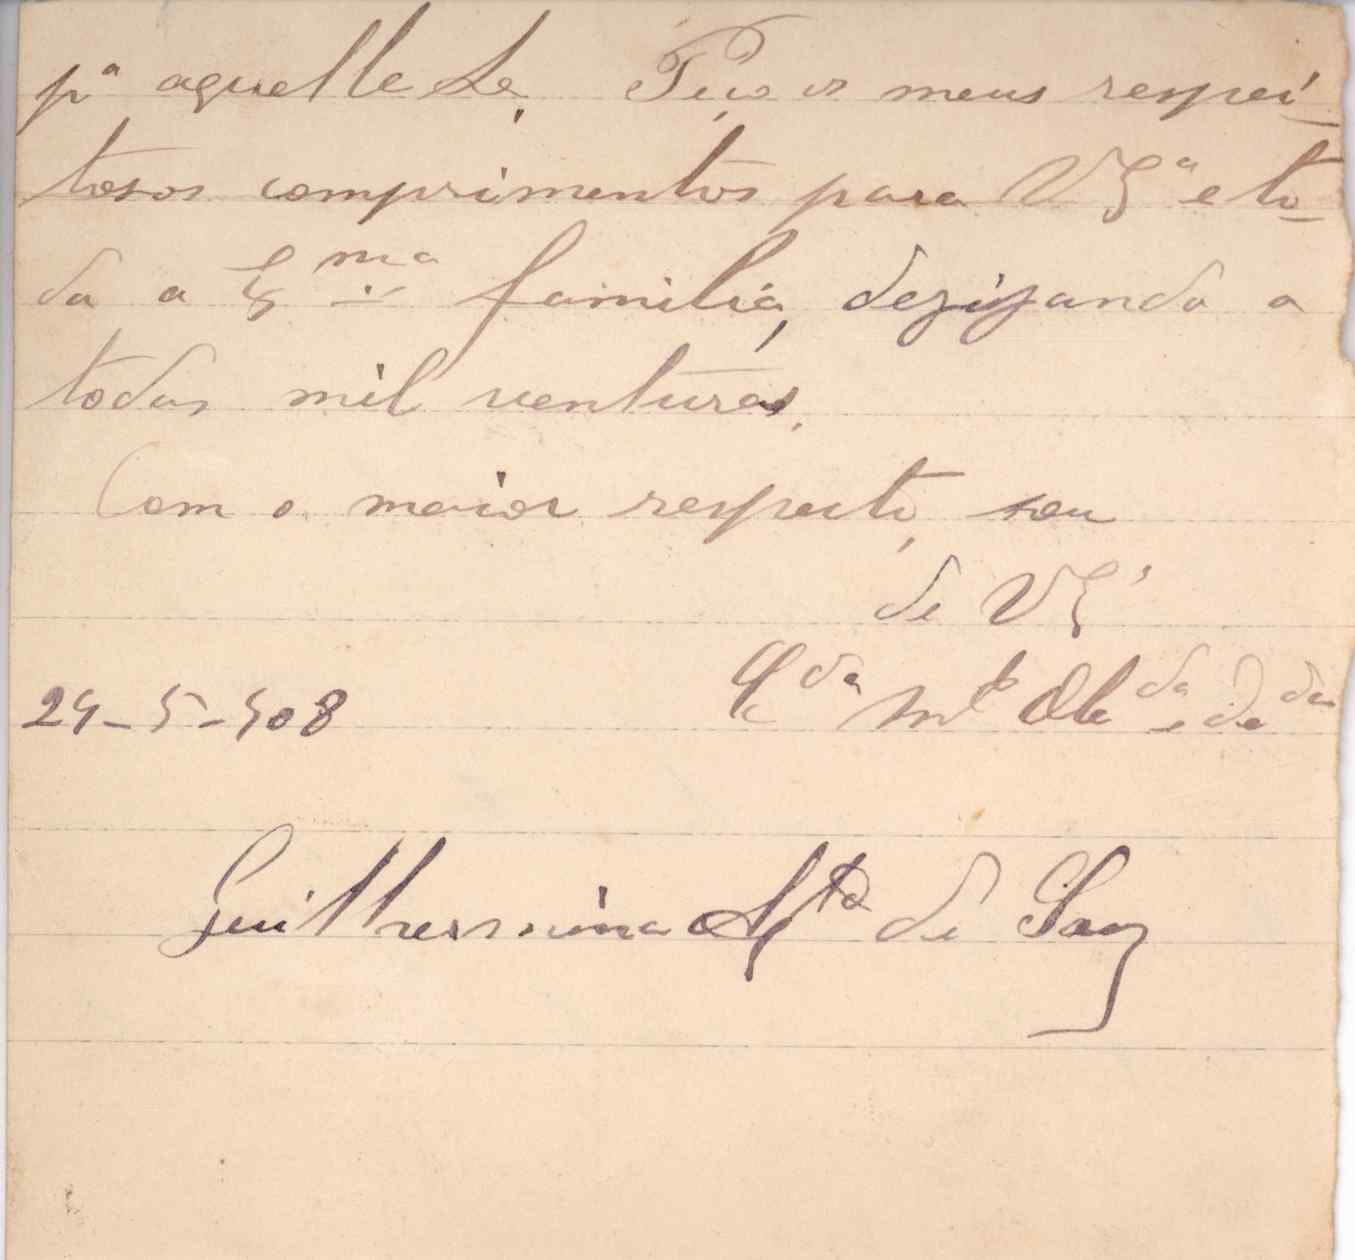 pª aquelle Sr. Peço os meus respei-
tosos comprimentos para VEª e to-
da a Exma familia, dezijando a
todos mil venturas.
Com o maior respeito, sou
de VEª
Cda mto Obda e
29-5-908
Guilhermina de